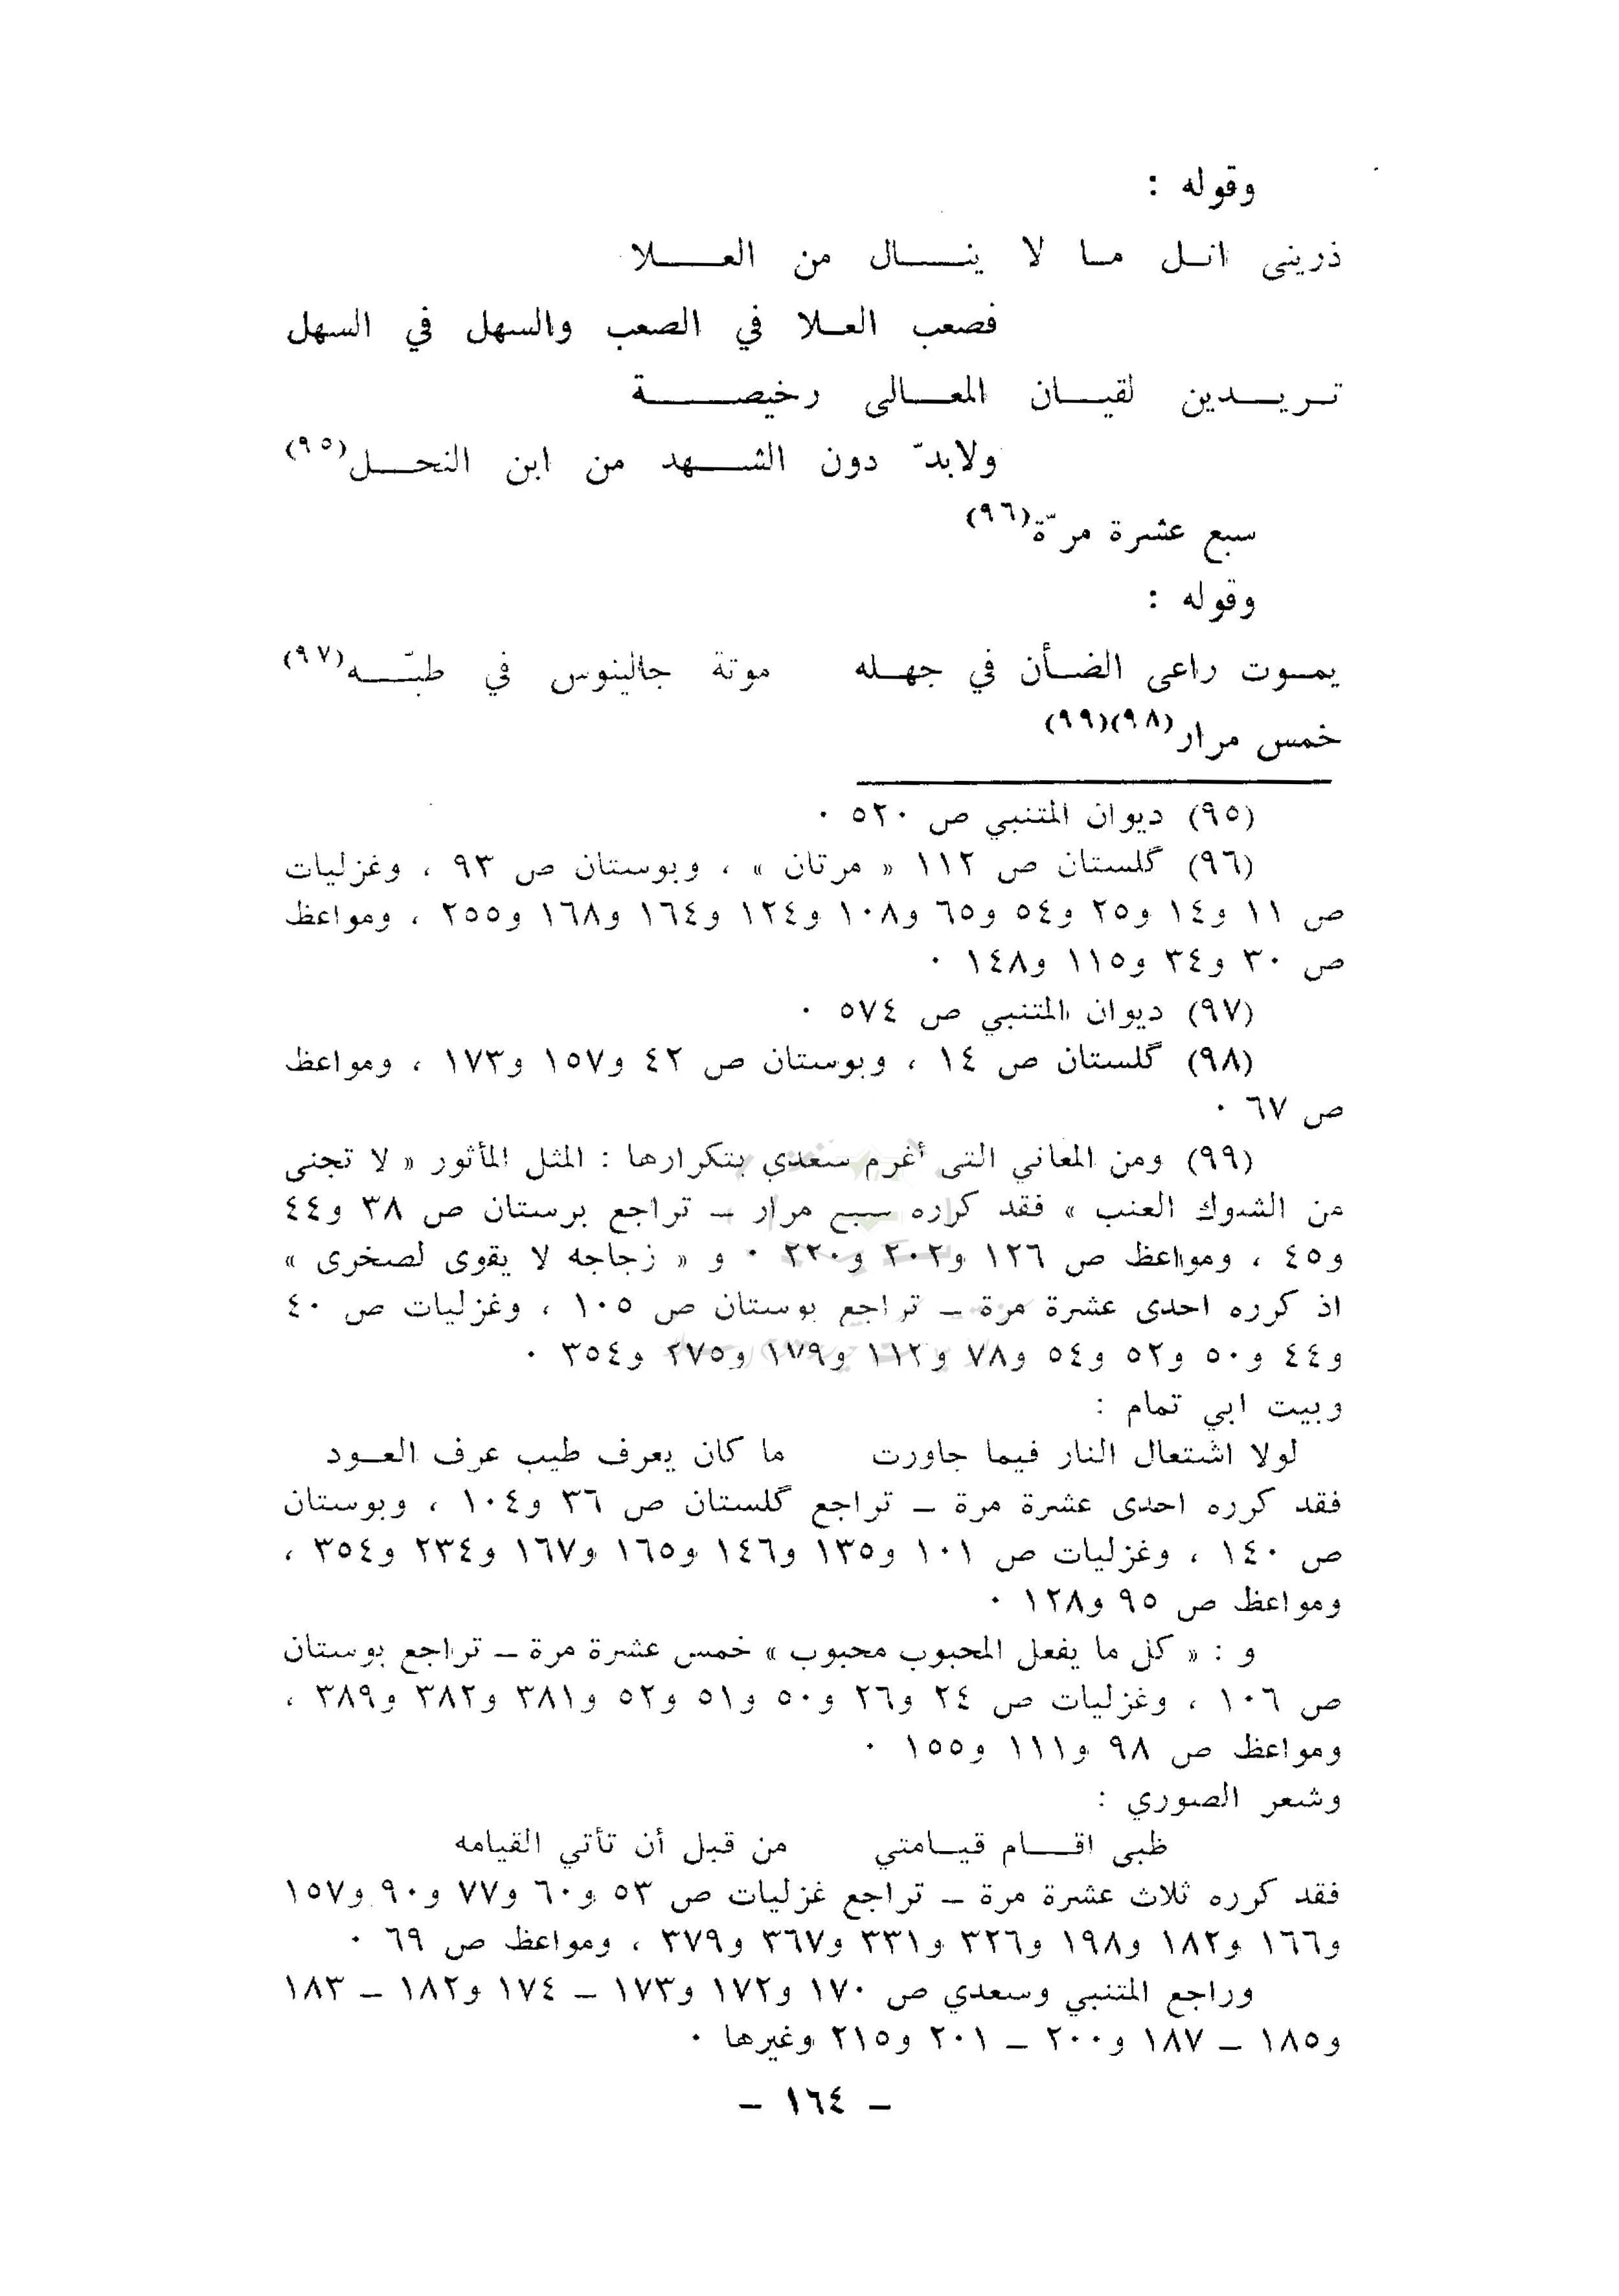 وقوله :
ذرينى انل ما لا ينال من العلا
فصعب العلا في الصعب والسهل في السهل
تريدين لقيان المعالى رخيصة
ولابدّ دون الشهد من ابن النحل(٩٥)
سبع عشرة مرّة(٩٦)
وقوله :
يموت راعى الضأن في جهله موتة جالينوس في طبّه(٩٧)
خمس مرار(٩٨)(٩٩)
(٩٥) ديوان المتنبي ص ٥٢٠ ٠
(٩٦) گلستان ص ١١٢ « مرتان » ، وبوستان ص ٩٣ ، وغزليات
ص ١١ و١٤ و٢٥ و٥٤ و٦٥ و١٠٨ و١٢٤ و١٦٤ و١٦٨ و٢٥٥ ، ومواعظ
ص ٣٠ و٣٤ و١١٥ و١٤٨ ٠
(٩٧) ديوان المتنبي ص ٥٧٤ ٠
(٩٨) گلستان ص ١٤ ، وبوستان ص ٤٢ و١٥٧ و١٧٣ ، ومواعظ
ص ٦٧ ٠
(٩٩) ومن المعاني التى أغرم سعدي بتكرارها : المثل المأثور « لا تجنى
من الشوك العنب » فقد كرره سبع مرار ــ تراجع برستان ص ٣٨ و٤٤
و٤٥ ، ومواعظ ص ١٢٦ و٢٠٢ و٢٢٠ ٠ و « زجاجه لا يقوى لصخرى »
اذ كرره احدى عشرة مرة ــ تراجع بوستان ص ١٠٥ ، وغزليات ص ٤٠
و٤٤ و٥٠ و٥٢ و٥٤ و٧٨ و١١٢ و١٧٩ و٢٧٥ و٣٥٤ ٠
وبيت ابي تمام :
لولا اشتعال النار فيما جاورت ما كان يعرف طيب عرف العود
فقد كرره احدى عشرة مرة ــ تراجع گلستان ص ٣٦ و١٠٤ ، وبوستان
ص ١٤٠ ، وغزليات ص ١٠١ و١٣٥ و١٤٦ و١٦٥ و١٦٧ و٢٣٤ و٣٥٤ ،
ومواعظ ص ٩٥ و١٢٨ ٠
و : « كل ما يفعل المحبوب محبوب » خمس عشرة مرة ــ تراجع بوستان
ص ١٠٦ ، وغزليات ص ٢٤ و٢٦ و٥٠ و٥١ و٥٢ و٣٨١ و٣٨٢ و٣٨٩ ،
ومواعظ ص ٩٨ و١١١ و١٥٥ ٠
وشعر الصوري :
ظبى اقام قيامتي من قبل أن تأتي القيامه
فقد كرره ثلاث عشرة مرة ــ تراجع غزليات ص ٥٣ و٦٠ و٧٧ و٩٠ و١٥٧
و١٦٦ و١٨٢ و١٩٨ و٣٢٦ و٣٣١ و٣٦٧ و٣٧٩ ، ومواعظ ص ٦٩ ٠
وراجع المتنبي وسعدي ص ١٧٠ و١٧٢ و١٧٣ ــ ١٧٤ و١٨٢ ــ ١٨٣
و١٨٥ ــ ١٨٧ و٢٠٠ ــ ٢٠١ و٢١٥ وغيرها ٠
ــ ١٦٤ ــ